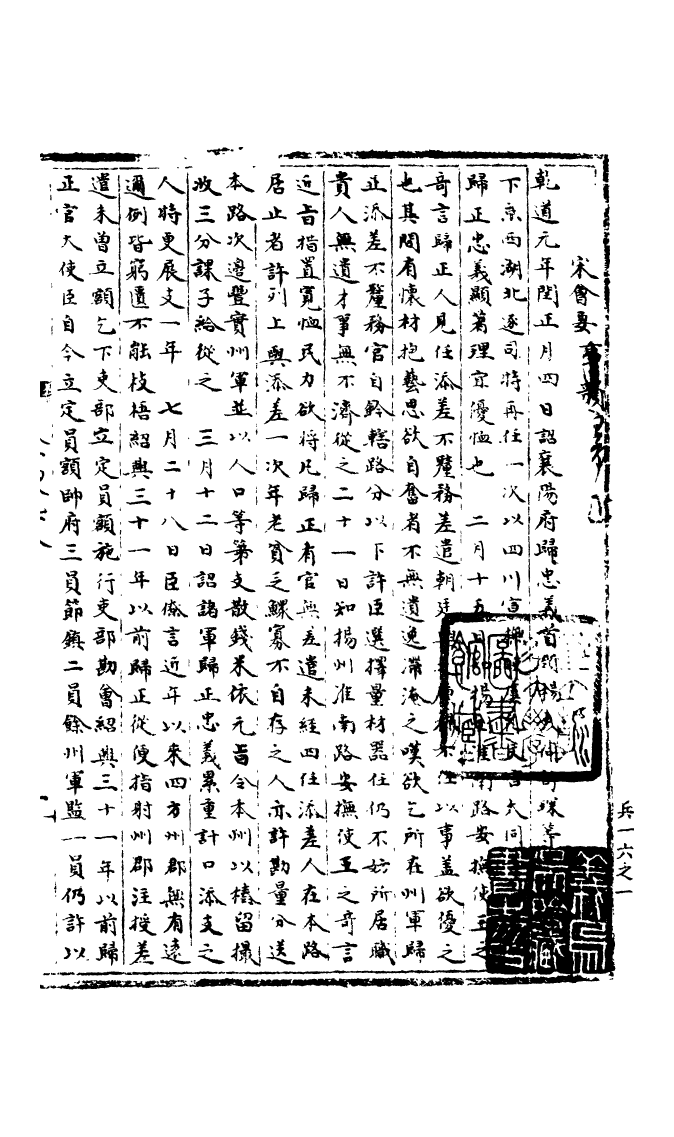 宋會要
乾道元年閏正月四日詔襄陽府歸忠義首
下京西湖北逐司將再任一次以四川宣撫使 言大同
歸正忠義顯著理宜優恤也 二月十五日知揚州淮南路安撫使王之
奇言歸正人見任添差不釐務差遣朝廷 以事蓋欲優之
也其間有懷材抱藝思欲自奮者不無遺逸滯淹之嘆欲乞所在州軍歸
正添差不釐務官自鈐轄路分以下許臣選擇量材器任仍不妨所居職
貴人無遺才事無不濟從之二十一日知揚州淮南路安撫使王之奇言
近旨措置寬恤民力欲將凡歸正有官無差遣未經四任添差人在本路
居止者許列上與添差一次年老貧乏鰥寡不自存之人亦許勘量分送
本路次邊豐實州軍並以人口等第支散錢米依元旨令本州以樁留撮
收三分課子給從之 三月十二日詔諸軍歸正忠義累重計口添支之
人時更展支一年 七月二十八日臣僚言近年以來四方州郡無有遠
邇例皆窮匱不能枝梧紹興三十一年以前歸正從便指射州郡注授差
遣未曾立額乞下吏部立定員額施行吏部勘會紹興三十一年以前歸
正官大使臣自今立定員額帥府三員節鎮二員餘州軍監一員仍許以
兵一六之一